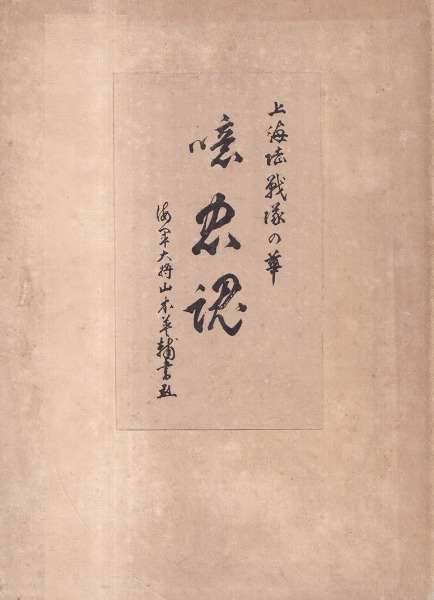 上海陸戦隊の華
噫忠魂
海軍大将山本英輔書題